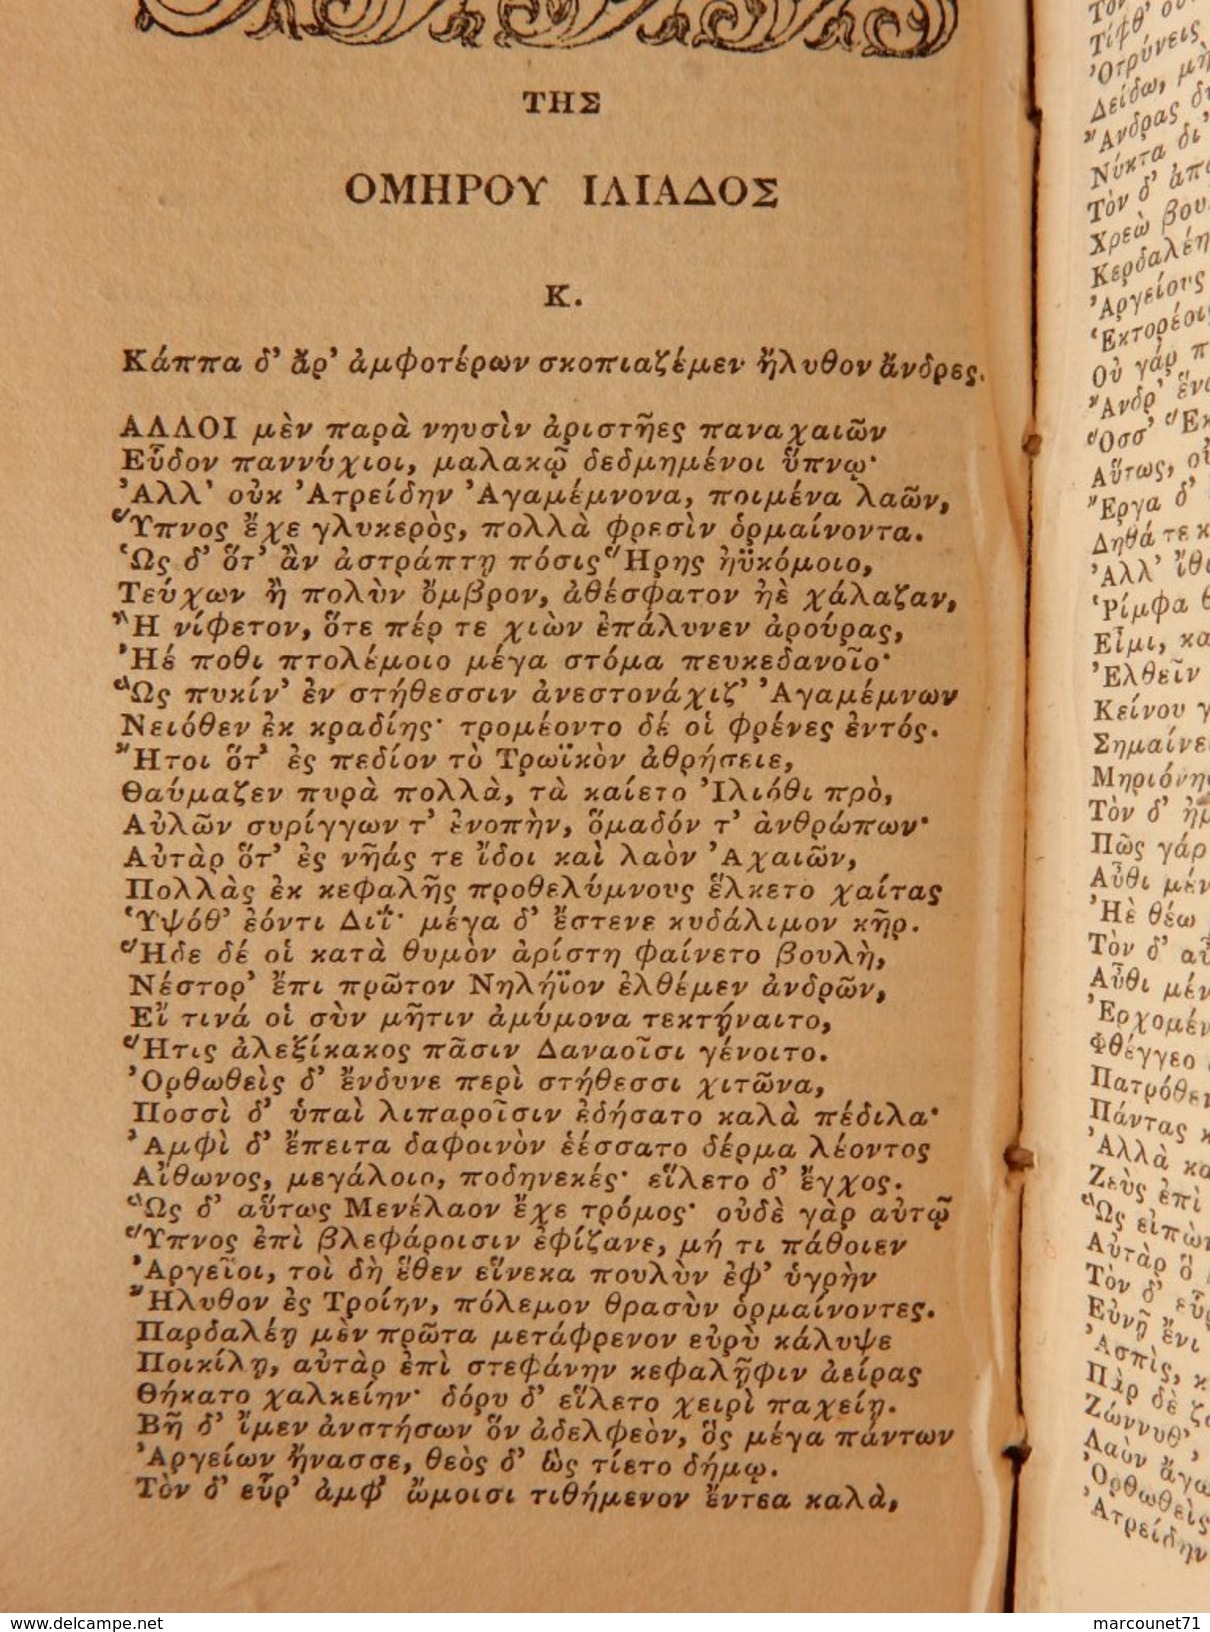 ΤΗΣ
ΟΜΗΡΟΥ ΙΛΙΑΔΟΣ
Κ.
Κάππα δ' ἄρ' ἀμφοτέρων σκοπιαζέμεν ἤλυθον ἄνδρες.
ΑΛΛΟΙ μὲν παρὰ νηυσὶν ἀριστῆες παναχαιῶν
Εὗδον παννύχιοι, μαλακῷ δεδμημένοι ὕπνῳ·
Ἀλλ' οὐκ Ἀτρείδην Ἀγαμέμνονα, ποιμένα λαῶν,
Ὕπνος ἔχε γλυκερὸς, πολλὰ φρεσὶν ὁρμαίνοντα.
Ὡς δ' ὅτ' ἂν ἀστράπτῃ πόσις Ἥρης ἠϋκόμοιο,
Τεύχων ἢ πολὺν ὄμβρον, ἀθέσφατον ἠὲ χάλαζαν,
Ἢ νίφετον, ὅτε πέρ τε χιὼν ἐπάλυνεν ἀρούρας,
Ἠέ ποθι πτολέμοιο μέγα στόμα πευκεδανοῖο·
Ὣς πυκίν' ἐν στήθεσσιν ἀνεστονάχιζ' Ἀγαμέμνων
Νειόθεν ἐκ κραδίης· τρομέοντο δέ οἱ φρένες ἐντός.
Ἤτοι ὅτ' ἐς πεδίον τὸ Τρωϊκὸν ἀθρήσειε,
Θαύμαζεν πυρὰ πολλὰ, τὰ καίετο Ἰλιόθι πρὸ,
Αὐλῶν συρίγγων τ' ἐνοπὴν, ὅμαδόν τ' ἀνθρώπων·
Αὐτὰρ ὅτ' ἐς νῆάς τε ἴδοι καὶ λαὸν Ἀχαιῶν,
Πολλὰς ἐκ κεφαλῆς προθελύμνους ἕλκετο χαίτας
Ὑψόθ' ἐόντι Διΐ· μέγα δ' ἔστενε κυδάλιμον κῆρ.
Ἥδε δέ οἱ κατὰ θυμὸν ἀρίστη φαίνετο βουλὴ,
Νέστορ' ἔπι πρῶτον Νηλήϊον ἐλθέμεν ἀνδρῶν,
Εἴ τινά οἱ σὺν μῆτιν ἀμύμονα τεκτήναιτο,
Ἥτις ἀλεξίκακος πᾶσιν Δαναοῖσι γένοιτο.
Ὀρθωθεὶς δ' ἔνδυνε περὶ στήθεσσι χιτῶνα,
Ποσσὶ δ' ὑπαὶ λιπαροῖσιν ἐδήσατο καλὰ πέδιλα·
Ἀμφὶ δ' ἔπειτα δαφοινὸν ἑέσσατο δέρμα λέοντος
Αἴθωνος, μεγάλοιο, ποδηνεκές· εἵλετο δ' ἔγχος.
Ὣς δ' αὔτως Μενέλαον ἔχε τρόμος· οὐδὲ γὰρ αὐτῷ
Ὕπνος ἐπὶ βλεφάροισιν ἐφίζανε, μή τι πάθοιεν
Ἀργεῖοι, τοὶ δὴ ἕθεν εἵνεκα πουλὺν ἐφ' ὑγρὴν
Ἤλυθον ἐς Τροίην, πόλεμον θρασὺν ὁρμαίνοντες.
Παρδαλέῃ μὲν πρῶτα μετάφρενον εὐρὺ κάλυψε
Ποικίλῃ, αὐτὰρ ἐπὶ στεφάνην κεφαλῆφιν ἀείρας
Θήκατο χαλκείην· δόρυ δ' εἵλετο χειρὶ παχείῃ.
Βῆ δ' ἴμεν ἀνστήσων ὃν ἀδελφεὸν, ὃς μέγα πάντων
Ἀργείων ἤνασσε, θεὸς δ' ὣς τίετο δήμῳ.
Τὸν δ' εὗρ' ἀμφ' ὤμοισι τιθήμενον ἔντεα καλὰ,
Τίφθ'
Ὀτρύνεις
Δείδω, μὴ
Ἄνδρας
Νύκτα δι'
Τὸν δ'
Χρεὼ
Κερδαλέη
Ἀργείους
Οὐ γάρ
Ἄνδρ' ἕνα
Ὅσσ'
Αὔτως,
Ἔργα δ'
Δηθά τε
Ἀλλ' ἴθι
Ῥίμφα
Εἶμι,
Ἐλθεῖν
Κείνου
Τὸν δ'
Πῶς γάρ
Αὖθι
Ἠὲ θέω
Τὸν δ'
Αὖθι
Φθέγγεο
Πάντας
Ἀλλὰ
Ζεὺς ἐπὶ
Ὣς εἰπὼν
Αὐτὰρ ὃ
Τὸν δ'
Εὐνῇ ἔνι
Ἀσπὶς,
Πὰρ δὲ
Ζώννυθ',
Λαὸν
Ὀρθωθεὶς
Ἀτρείδην
www.delcampe.net
marcounet71